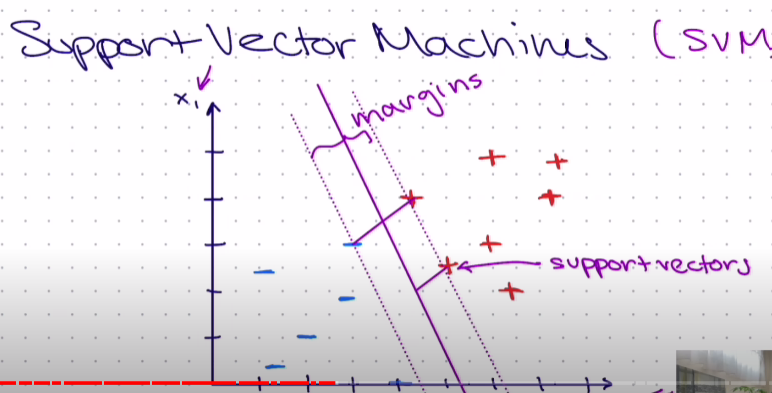 Support Vector Machines (SVM
x₁
margins
support vectors